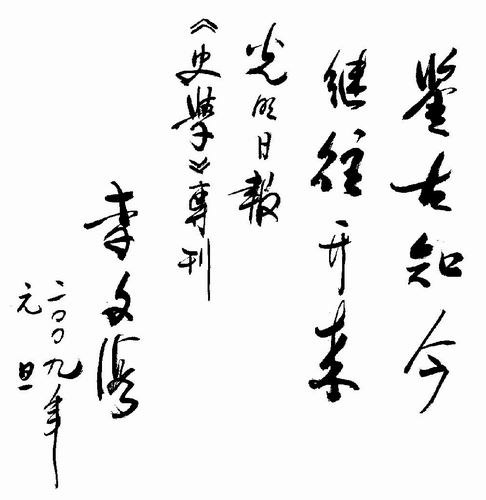 鉴古知今
继往开来
光明日報
《史學》專刊
李文海
二〇〇九年
元旦